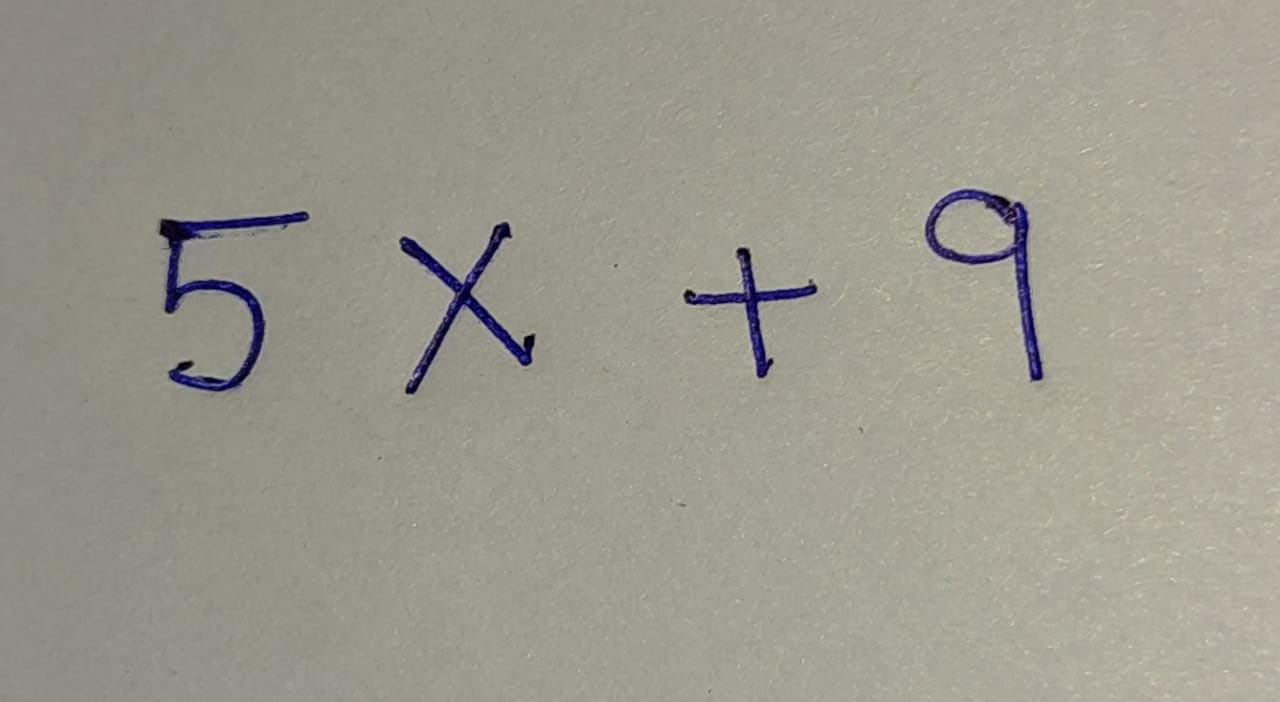 5x + 9